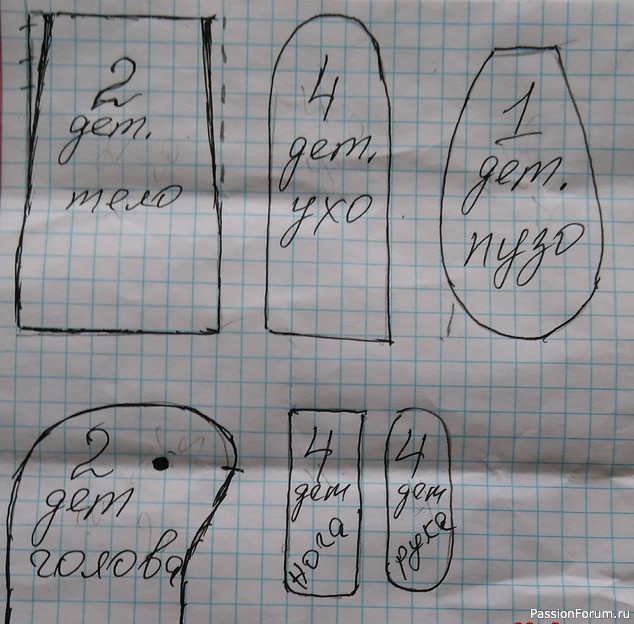 2
дет.
тело
4
дет.
ухо
1
дет.
пузо
2
дет
голова
4
дет
нога
4
дет
рука
PassionForum.ru